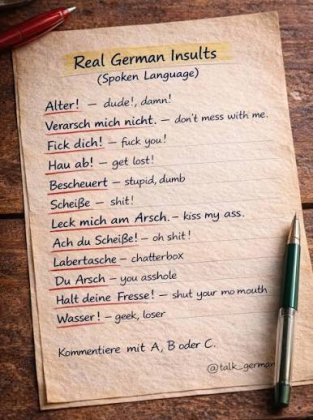 Real German Insults
(Spoken Language)
Alter! – dude!, damn!
Verarsch mich nicht. – don't mess with me.
Fick dich! – fuck you!
Hau ab! – get lost!
Bescheuert – stupid, dumb
Scheiße – shit!
Leck mich am Arsch. – kiss my ass.
Ach du Scheiße! – oh shit!
Labertasche – chatterbox
Du Arsch – you asshole
Halt deine Fresse! – shut your mo mouth
Wasser! – geek, loser
Kommentiere mit A, B oder C.
@talk_german